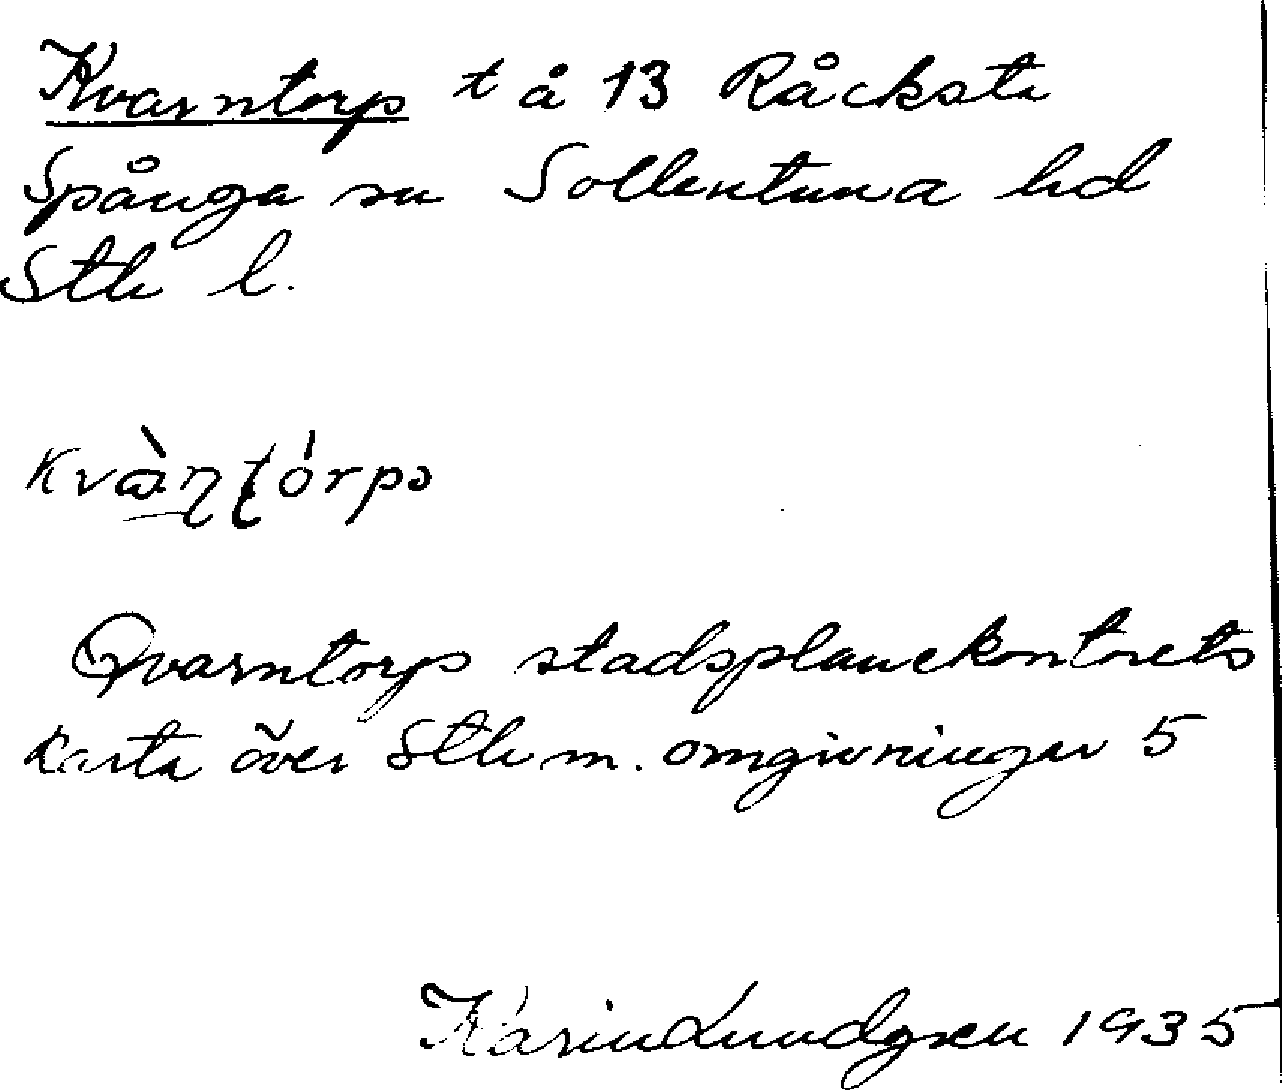 Kvarntorp t å 13 Råcksta
Spånga sn Sollentuna hd
Sthl l.
kvàɳʈórpə
Qvarntorp stadsplanekontorets
karta över Sthlm. omgivningar 5
Karin Lundgren 1935